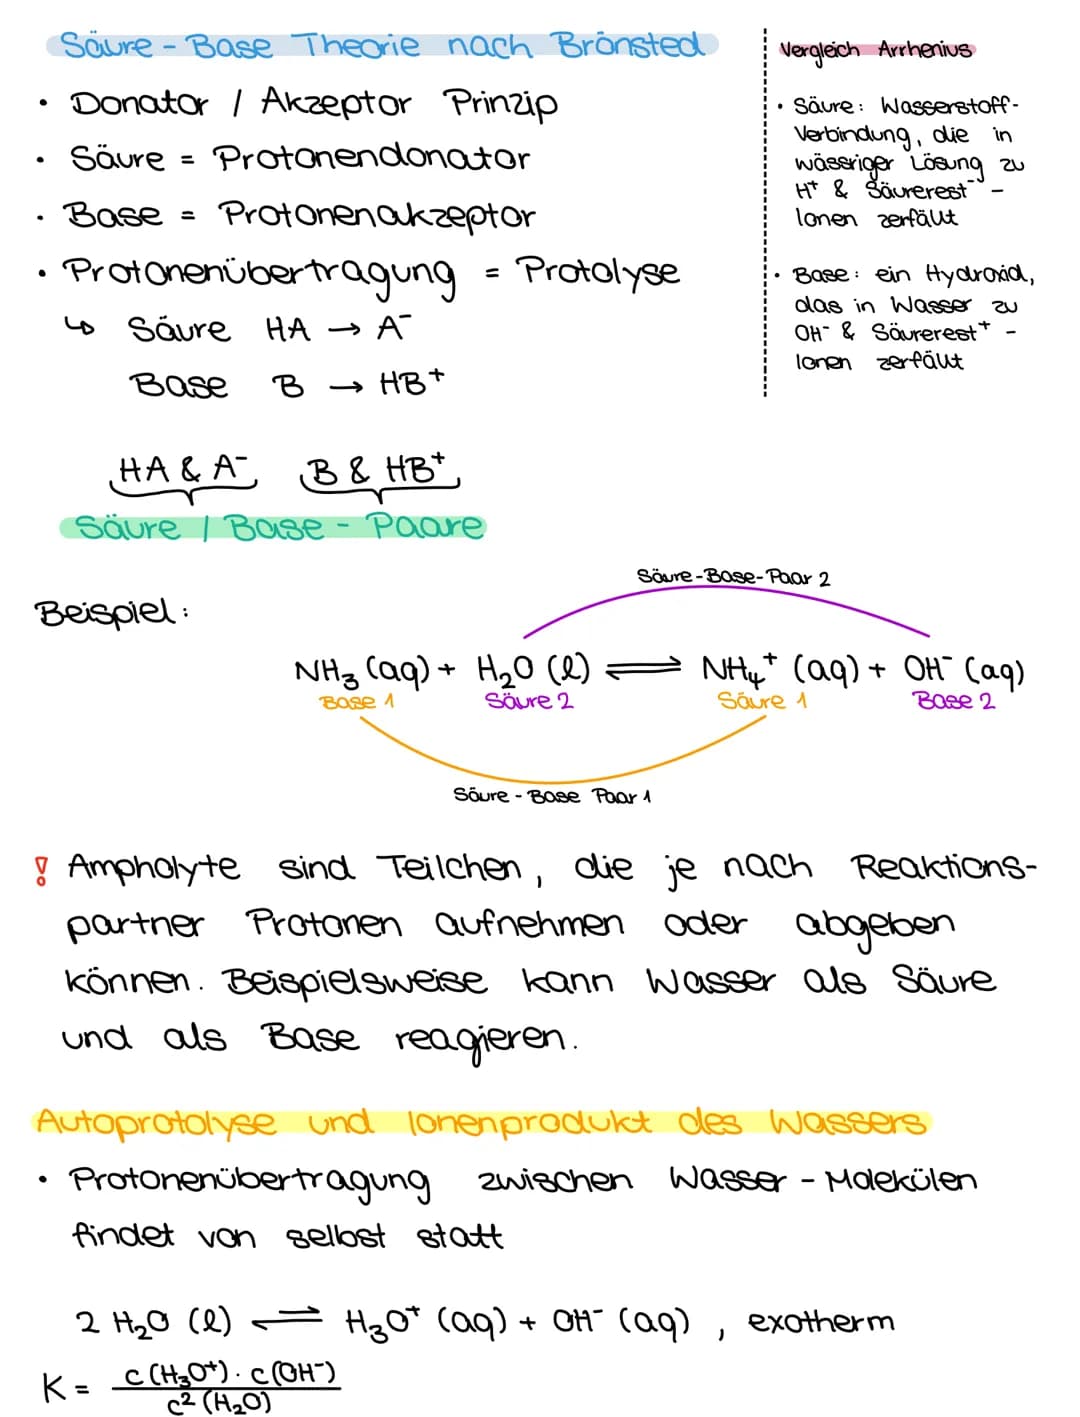 Säure - Base Theorie nach Brönsted
• Donator / Akzeptor Prinzip
• Säure = Protonendonator
• Base = Protonenakzeptor
• Protonenübertragung = Protolyse
↳ Säure HA → A⁻
Base B → HB⁺
HA & A⁻ B & HB⁺
Säure / Base - Paare
Vergleich Arrhenius
• Säure: Wasserstoff-
Verbindung, die in
wässriger Lösung zu
H⁺ & Säurerest⁻ -
Ionen zerfällt
• Base: ein Hydroxid,
das in Wasser zu
OH⁻ & Säurerest⁺ -
Ionen zerfällt
Beispiel:
Säure-Base-Paar 2
NH₃ (aq) + H₂O (l) ⇌ NH₄⁺ (aq) + OH⁻ (aq)
Base 1 Säure 2 Säure 1 Base 2
Säure - Base Paar 1
! Ampholyte sind Teilchen, die je nach Reaktions-
partner Protonen aufnehmen oder abgeben
können. Beispielsweise kann Wasser als Säure
und als Base reagieren.
Autoprotolyse und Ionenprodukt des Wassers
• Protonenübertragung zwischen Wasser - Molekülen
findet von selbst statt
2 H₂O (l) ⇌ H₃O⁺ (aq) + OH⁻ (aq) , exotherm
K = c (H₃O⁺) · c (OH⁻)
c² (H₂O)